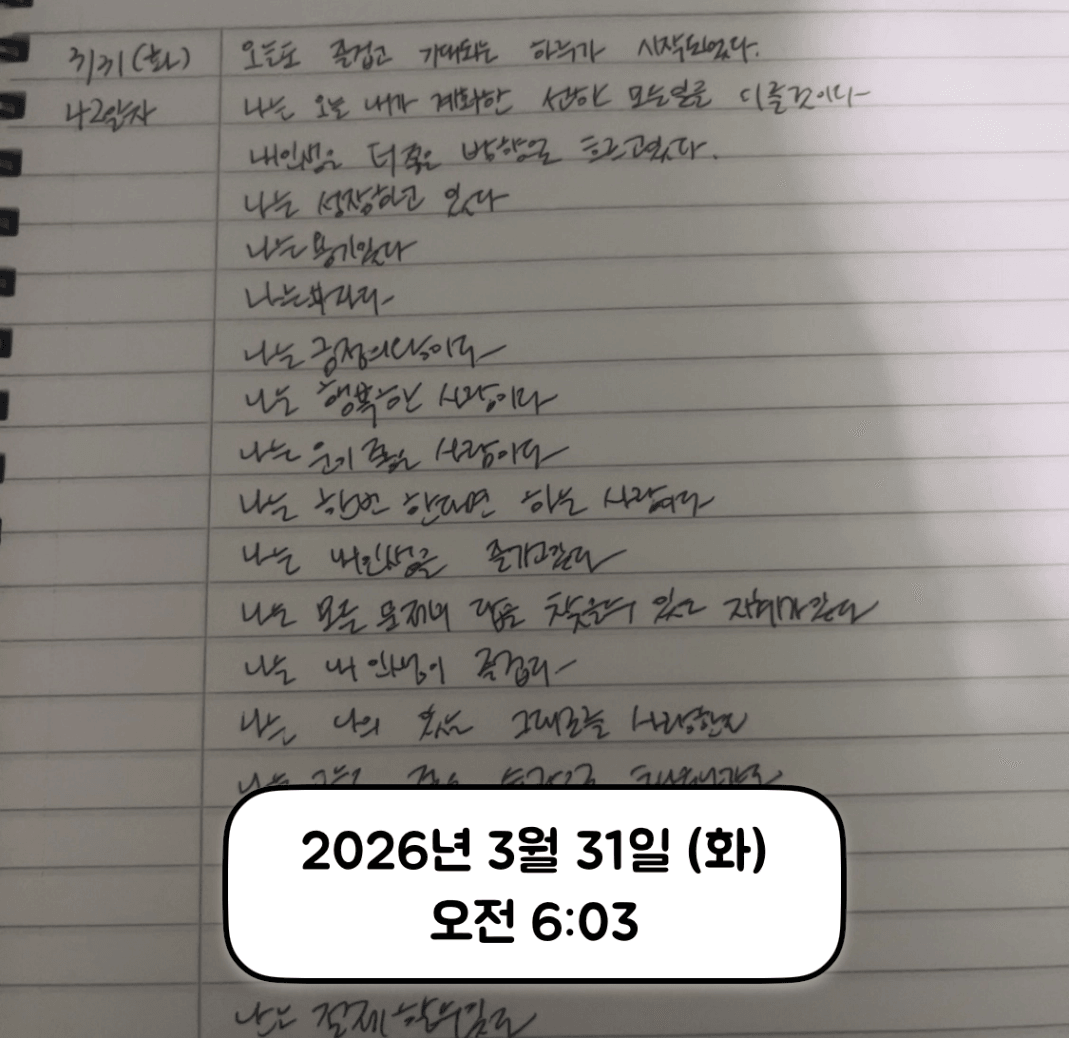 3/31 (화) 오늘도 즐겁고 기대되는 하루가 시작되었다.
42일차 나는 오늘 내가 계획한 선한 모든일을 다 할것이다
내인생은 더 좋은 방향으로 흐르고있다.
나는 성장하고 있다
나는 용기있다
나는 부자다
나는 긍정의
나는 행복한 사람이다
나는 운이 좋은 사람이다
나는 한번 한다면 하는 사람이다
나는 내인생을 즐기고있다
나는 모든 문제의 답을 찾을수 있는 지혜가있다
나는 내 인생이 즐겁다
나는 나의 모습을 그대로를 사랑한다
나는
2026년 3월 31일 (화)
오전 6:03
나는 절제할수있다